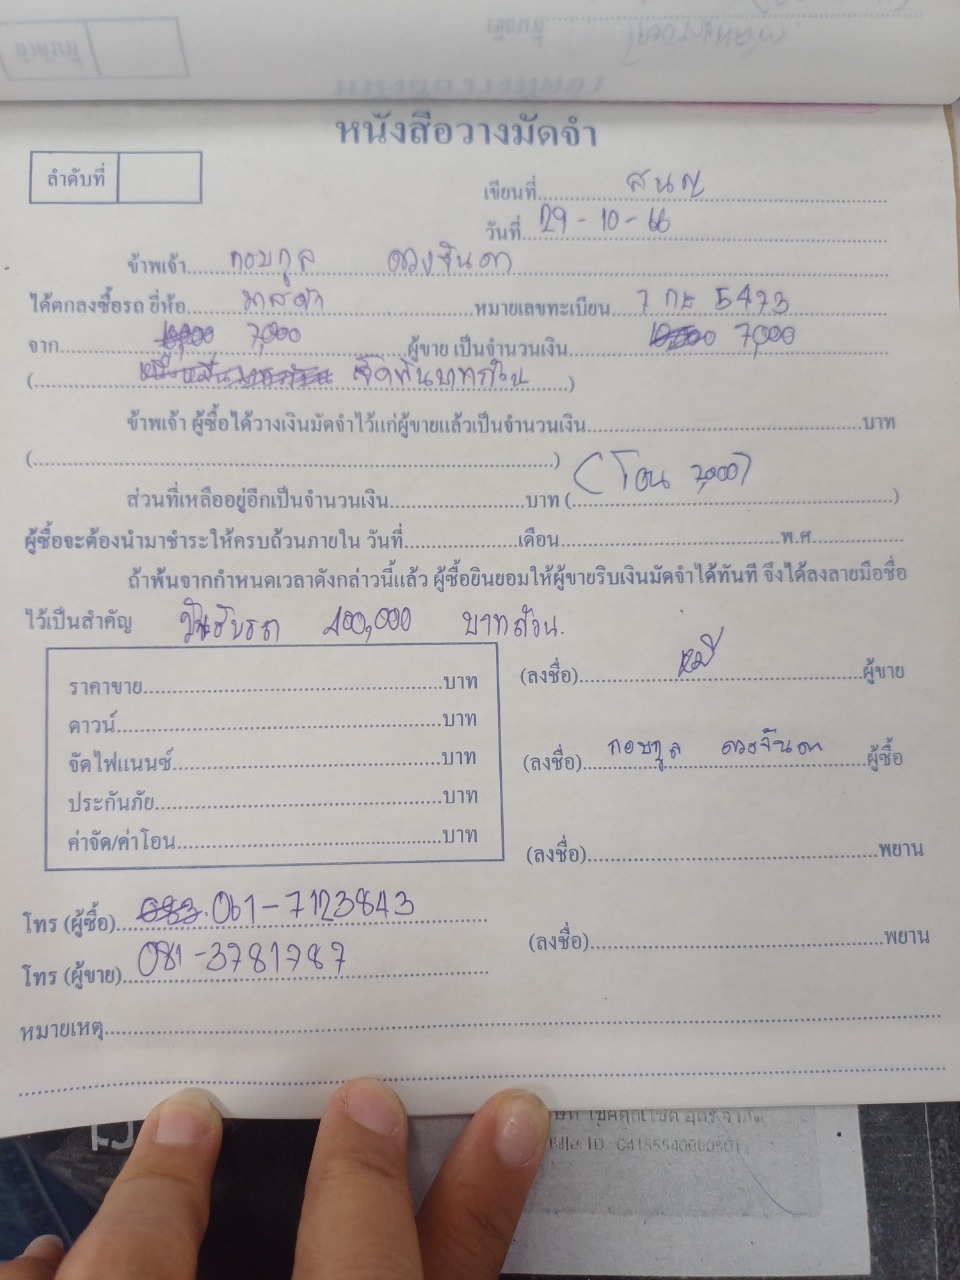 หนังสือวางมัดจำ
ลำดับที่
เขียนที่
วันที่ 29-10-66
ข้าพเจ้า กอบกูล ดวงจินดา
ได้ตกลงซื้อรถ ยี่ห้อ มาสด้า หมายเลขทะเบียน 7 กษ 5473
จาก 7,000 ผู้ขาย เป็นจำนวนเงิน 7,000
( เจ็ดพันบาทถ้วน )
ข้าพเจ้า ผู้ซื้อได้วางเงินมัดจำไว้แก่ผู้ขายแล้วเป็นจำนวนเงิน บาท
( )
ส่วนที่เหลืออยู่อีกเป็นจำนวนเงิน บาท ( (โอน 7,000) )
ผู้ซื้อจะต้องนำมาชำระให้ครบถ้วนภายใน วันที่ เดือน พ.ศ.
ถ้าพ้นจากกำหนดเวลาดังกล่าวนี้แล้ว ผู้ซื้อยินยอมให้ผู้ขายริบเงินมัดจำได้ทันที จึงได้ลงลายมือชื่อ
ไว้เป็นสำคัญ วันรับรถ 400,000 บาทถ้วน.
ราคาขาย บาท
ดาวน์ บาท
จัดไฟแนนซ์ บาท
ประกันภัย บาท
ค่าจัด/ค่าโอน บาท
(ลงชื่อ) ผู้ขาย
(ลงชื่อ) กอบกูล ดวงจินดา ผู้ซื้อ
(ลงชื่อ) พยาน
(ลงชื่อ) พยาน
โทร (ผู้ซื้อ) 061-7123843
โทร (ผู้ขาย) 081-3781787
หมายเหตุ